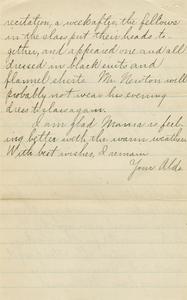 recitation, a week after, the fellows
in the class put their heads to-
gether, and appeared one and all
dressed in black suits and
flannel shirts. Mr. Newton will
probably not wear his evening
dress to class again.
I am glad Mama is feel-
ing better with the warm weather.
With best wishes, I remain
Your Aldo